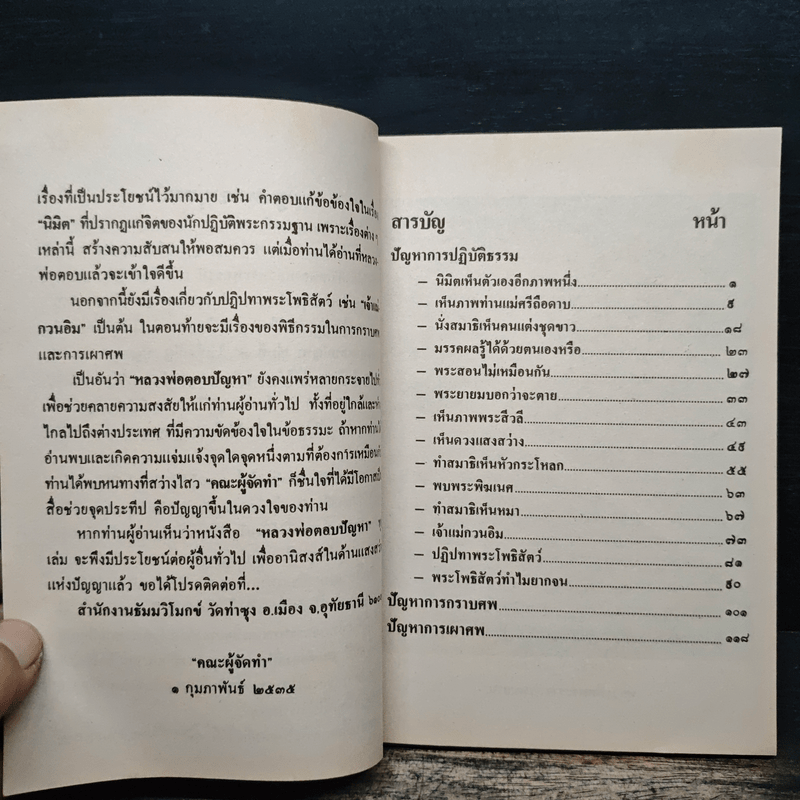 เรื่องที่เป็นประโยชน์ไว้มากมาย เช่น คำตอบแก้ข้อข้องใจในเรื่อง
"นิมิต" ที่ปรากฏแก่จิตของนักปฏิบัติพระกรรมฐาน เพราะเรื่องต่าง ๆ
เหล่านี้ สร้างความสับสนให้พอสมควร แต่เมื่อท่านได้อ่านที่หลวง
พ่อตอบแล้วจะเข้าใจดีขึ้น
นอกจากนี้ยังมีเรื่องเกี่ยวกับปฏิปทาพระโพธิสัตว์ เช่น "เจ้าแม่
กวนอิม" เป็นต้น ในตอนท้ายจะมีเรื่องของพิธีกรรมในการกราบศพ
และการเผาศพ
เป็นอันว่า "หลวงพ่อตอบปัญหา" ยังคงแพร่หลายกระจายไป
เพื่อช่วยคลายความสงสัยให้แก่ท่านผู้อ่านทั่วไป ทั้งที่อยู่ใกล้และ
ไกลไปถึงต่างประเทศ ที่มีความขัดข้องใจในข้อธรรมะ ถ้าหากท่าน
อ่านพบและเกิดความแจ่มแจ้งจุดใดจุดหนึ่งตามที่ต้องการเหมือน
ท่านได้พบหนทางที่สว่างไสว "คณะผู้จัดทำ" ก็ชื่นใจที่ได้มีโอกาส
สื่อช่วยจุดประทีป คือปัญญาขึ้นในดวงใจของท่าน
หากท่านผู้อ่านเห็นว่าหนังสือ "หลวงพ่อตอบปัญหา"
เล่ม จะพึงมีประโยชน์ต่อผู้อื่นทั่วไป เพื่ออานิสงส์ในด้านแสงสว่าง
แห่งปัญญาแล้ว ขอได้โปรดติดต่อที่...
สำนักงานธัมมวิโมกข์ วัดท่าซุง อ.เมือง จ.อุทัยธานี
"คณะผู้จัดทำ"
๑ กุมภาพันธ์ ๒๕๓๕
สารบัญ หน้า
ปัญหาการปฏิบัติธรรม
– นิมิตเห็นตัวเองอีกภาพหนึ่ง ๑
– เห็นภาพท่านแม่ศรีถือดาบ ๙
– นั่งสมาธิเห็นคนแต่งชุดขาว ๑๘
– มรรคผลรู้ได้ด้วยตนเองหรือ ๒๓
– พระสอนไม่เหมือนกัน ๒๗
– พระยายมบอกว่าจะตาย ๓๓
– เห็นภาพพระสีวลี ๔๓
– เห็นดวงแสงสว่าง ๔๙
– ทำสมาธิเห็นหัวกระโหลก ๕๕
– พบพระพิฆเนศ ๖๓
– ทำสมาธิเห็นหมา ๖๗
– เจ้าแม่กวนอิม ๗๓
– ปฏิปทาพระโพธิสัตว์ ๘๑
– พระโพธิสัตว์ทำไมยากจน ๙๐
ปัญหาการกราบศพ ๑๐๑
ปัญหาการเผาศพ ๑๑๘